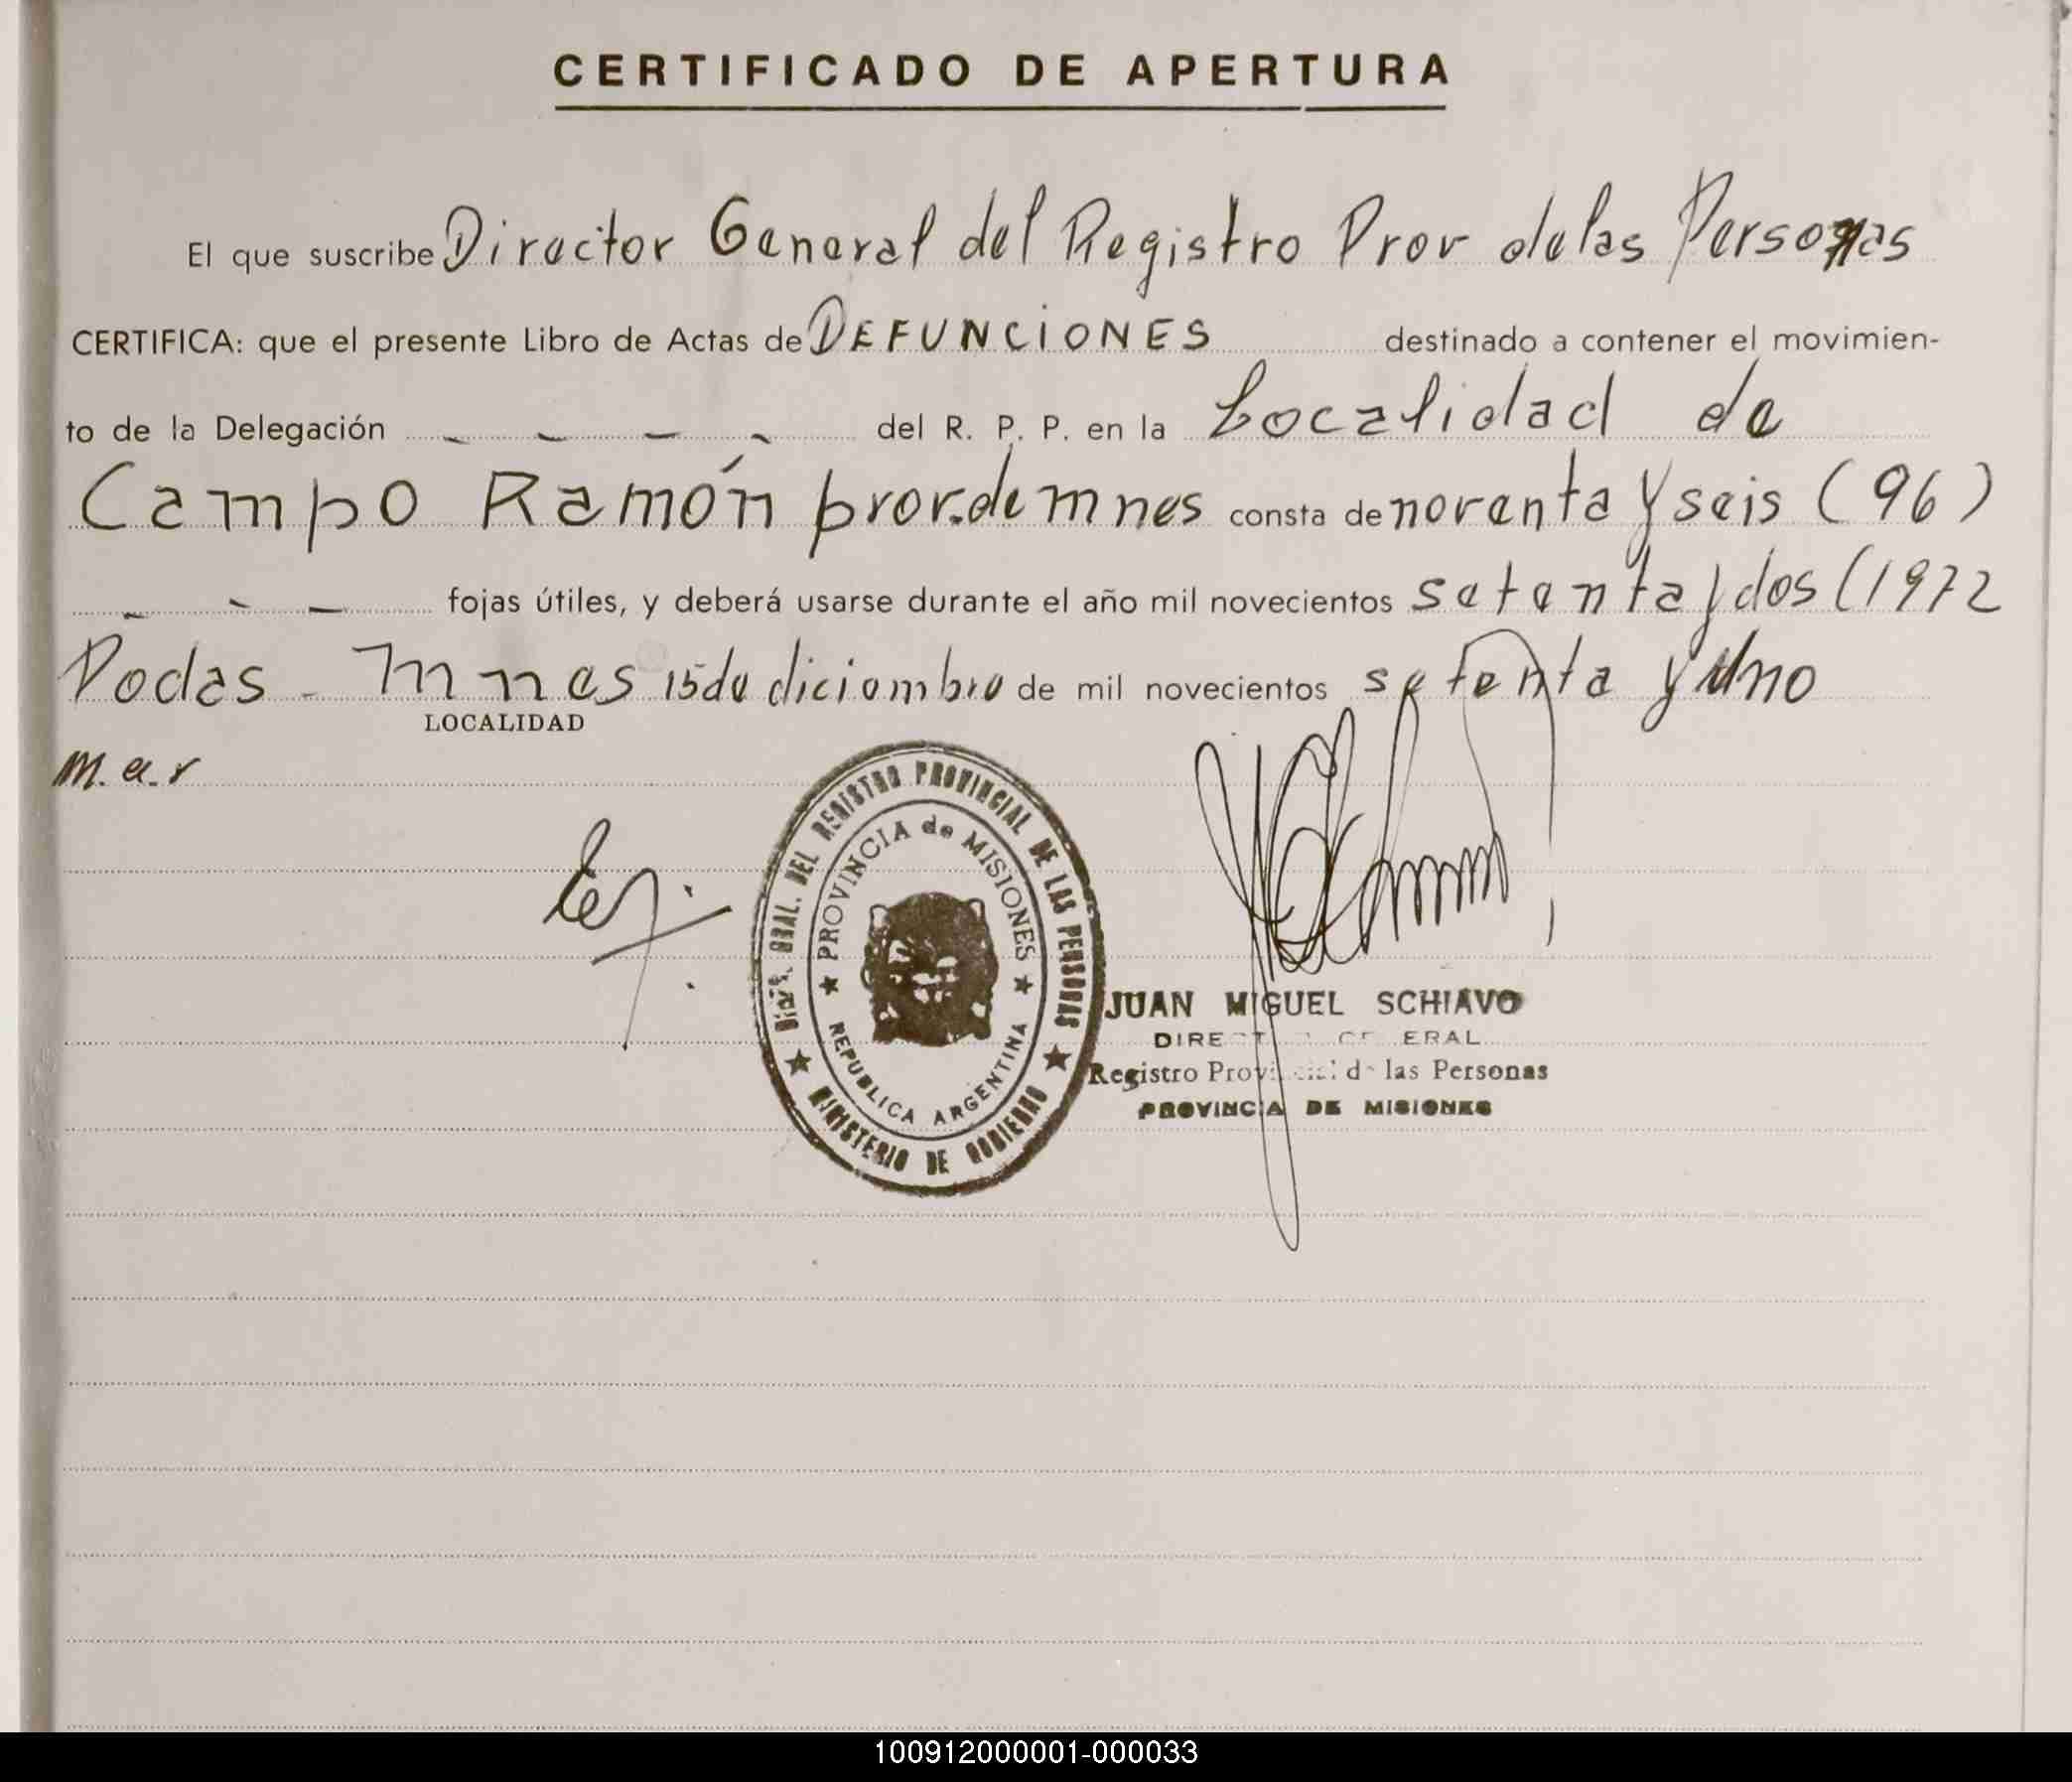 CERTIFICADO DE APERTURA
El que suscribe Director General del Registro Prov de las Personas
CERTIFICA: que el presente Libro de Actas de DEFUNCIONES destinado a contener el movimien-
to de la Delegación - - - - del R. P. P. en la Localidad de
Campo Ramón prov. de mnes consta de noventa y seis (96)
- - - fojas útiles, y deberá usarse durante el año mil novecientos setenta y dos (1972
Podas - mnes 15 de diciembre de mil novecientos setenta y uno
LOCALIDAD
m.a.r
DIREC. GRAL. DEL REGISTRO PROVINCIAL DE LAS PERSONAS
PROVINCIA de MISIONES
REPUBLICA ARGENTINA
MINISTERIO DE GOBIERNO
JUAN MIGUEL SCHIAVO
DIRECTOR GENERAL
Registro Provincial de las Personas
PROVINCIA DE MISIONES
100912000001-000033